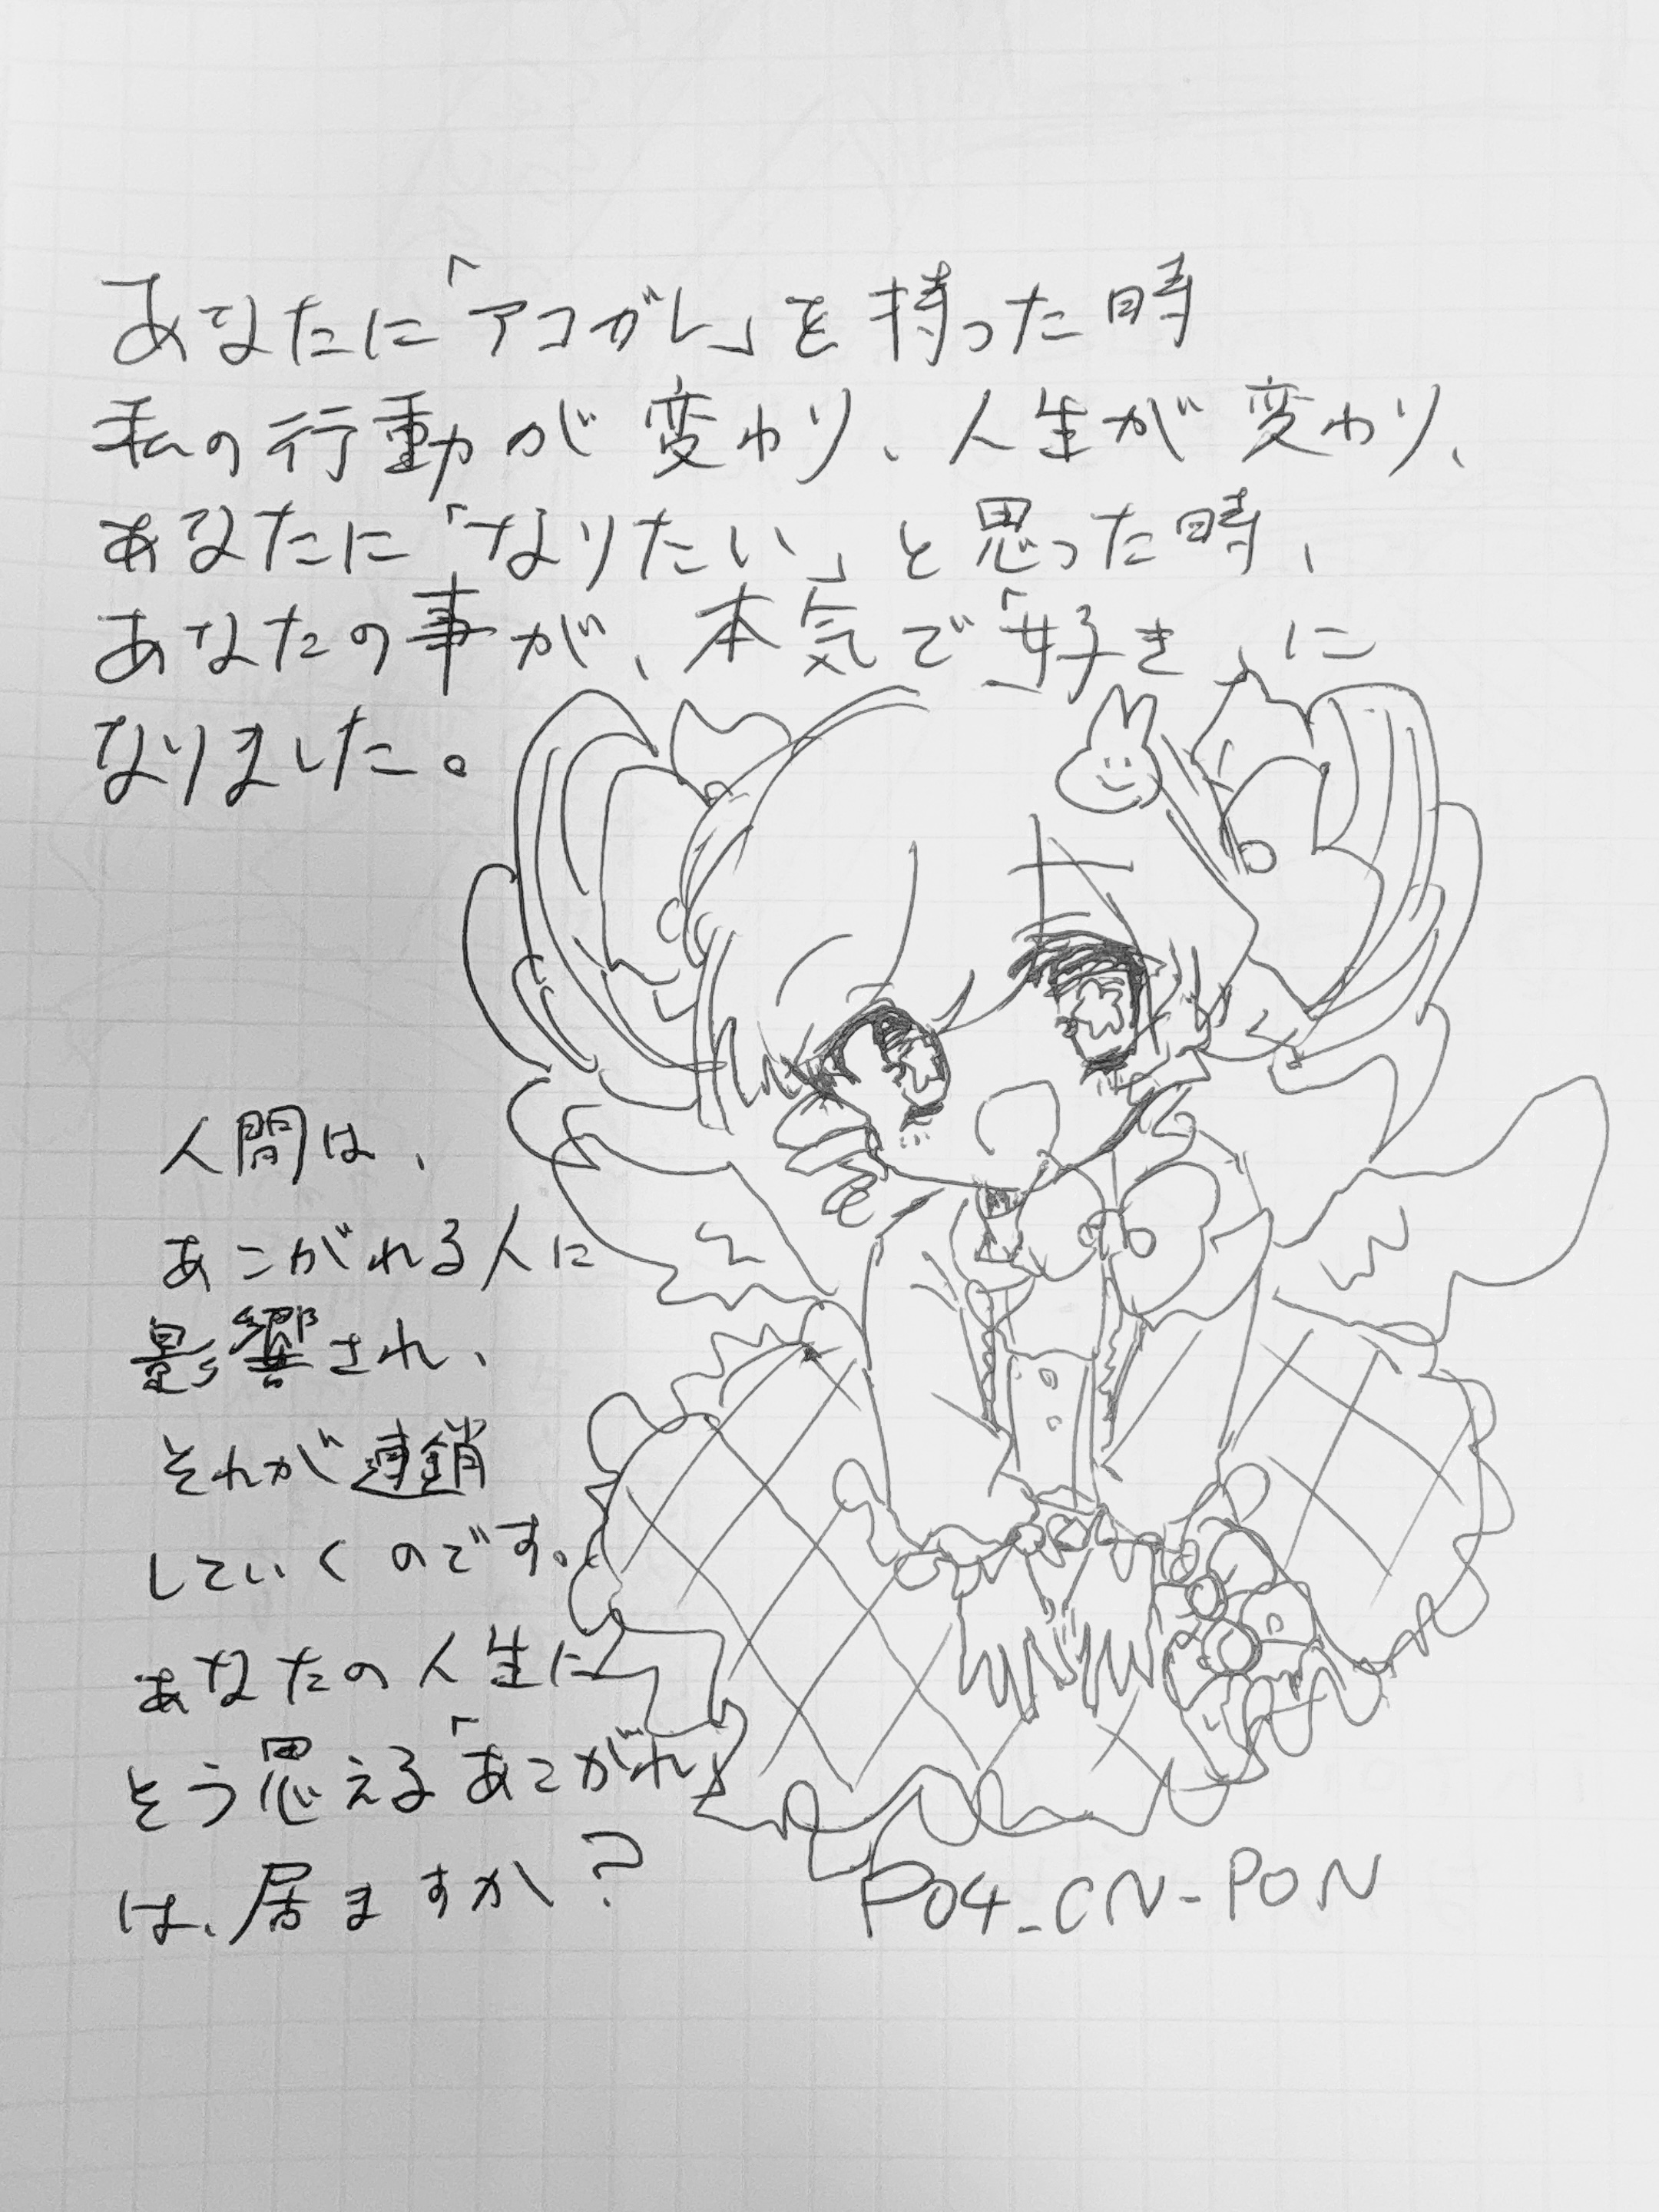 あなたに「アコガレ」を持った時
私の行動が変わり、人生が変わり、
あなたに「なりたい」と思った時、
あなたの事が、本気で「好き」に
なりました。
人間は、
あこがれる人に
影響され、
それが連鎖
していくのです。
あなたの人生に
そう思える「あこがれ」
は、居ますか？
P04_CN-PON